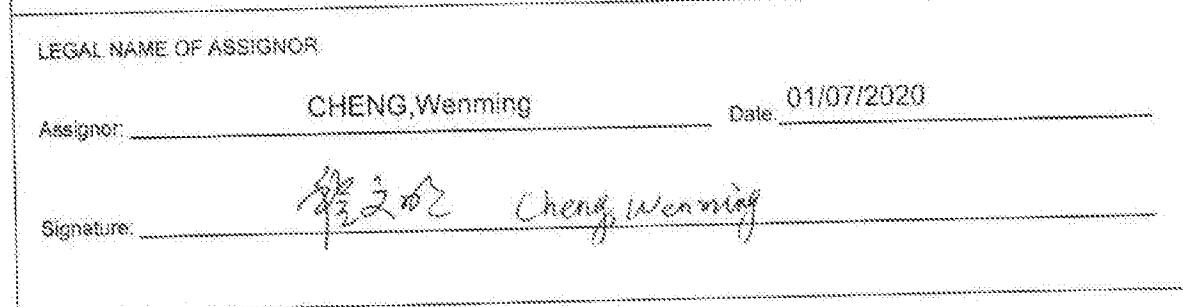 LEGAL NAME OF ASSIGNOR
Assignor: CHENG,Wenming Date: 01/07/2020
Signature: Cheng, Wenming